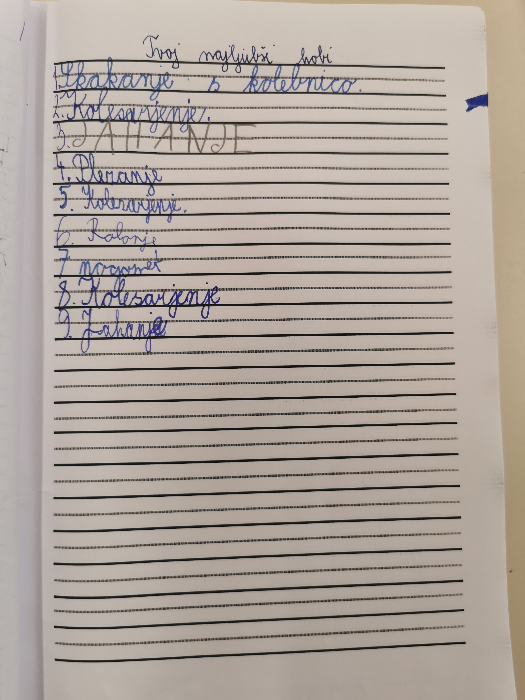 Tvoj najljubši hobi
1. Skakanje s kolebnico.
2. Kolesarjenje.
3. JAHANJE
4. Plezanje
5. Kolesarjenje.
6. Rolanje
7 nogomet
8. Kolesarjenje
9. Jahanje